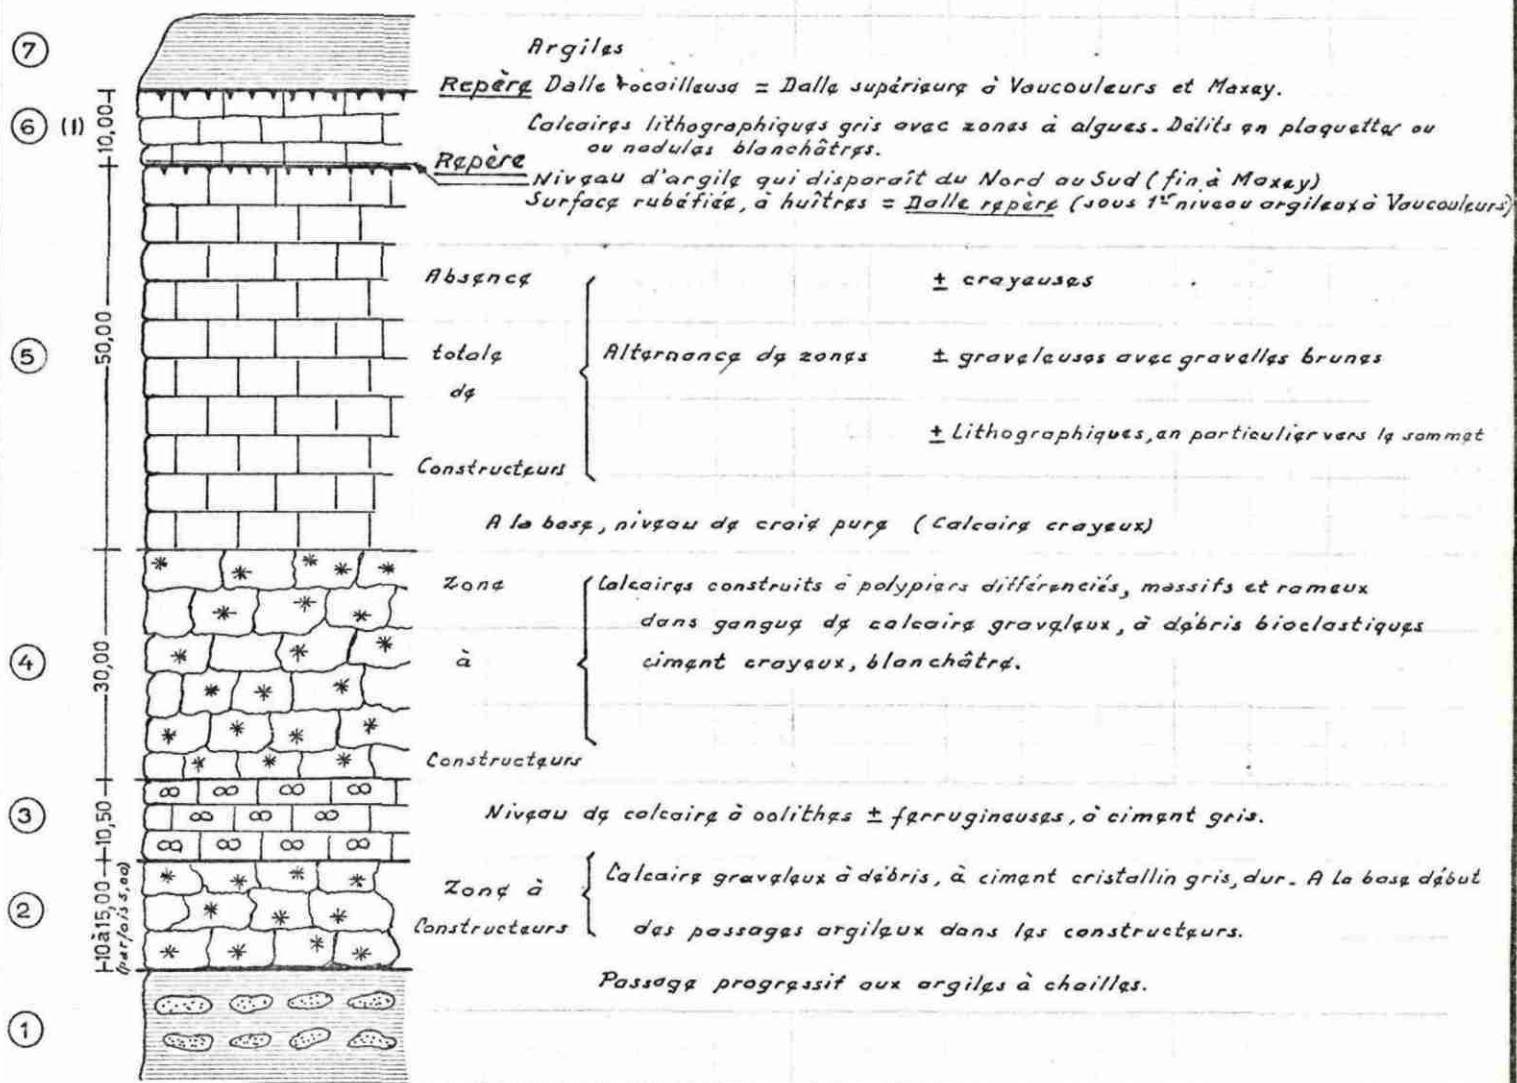 ⑦
Argiles
Repère Dalle rocailleuse = Dalle supérieure à Vaucouleurs et Maxey.
⑥ (1)
10,00
Calcaires lithographiques gris avec zones à algues. Délits en plaquettes ou
ou nodules blanchâtres.
Repère
Niveau d'argile qui disparaît du Nord au Sud (fin à Maxey)
Surface rubéfiée, à huîtres = Dalle repère (sous 1er niveau argileux à Vaucouleurs)
⑤
50,00
Absence
totale
de
Constructeurs
Alternance de zones
± crayeuses
± graveleuses avec gravelles brunes
± Lithographiques, en particulier vers le sommet
A la base, niveau de craie pure (Calcaire crayeux)
④
30,00
Zone
à
Constructeurs
Calcaires construits à polypiers différenciés, massifs et rameux
dans gangue de calcaire graveleux, à débris bioclastiques
ciment crayeux, blanchâtre.
③
10,50
Niveau de calcaire à oolithes ± ferrugineuses, à ciment gris.
②
10 à 15,00
(parfois 5,00)
Zone à
Constructeurs
Calcaire graveleux à débris, à ciment cristallin gris, dur. A la base début
des passages argileux dans les constructeurs.
Passage progressif aux argiles à chailles.
①